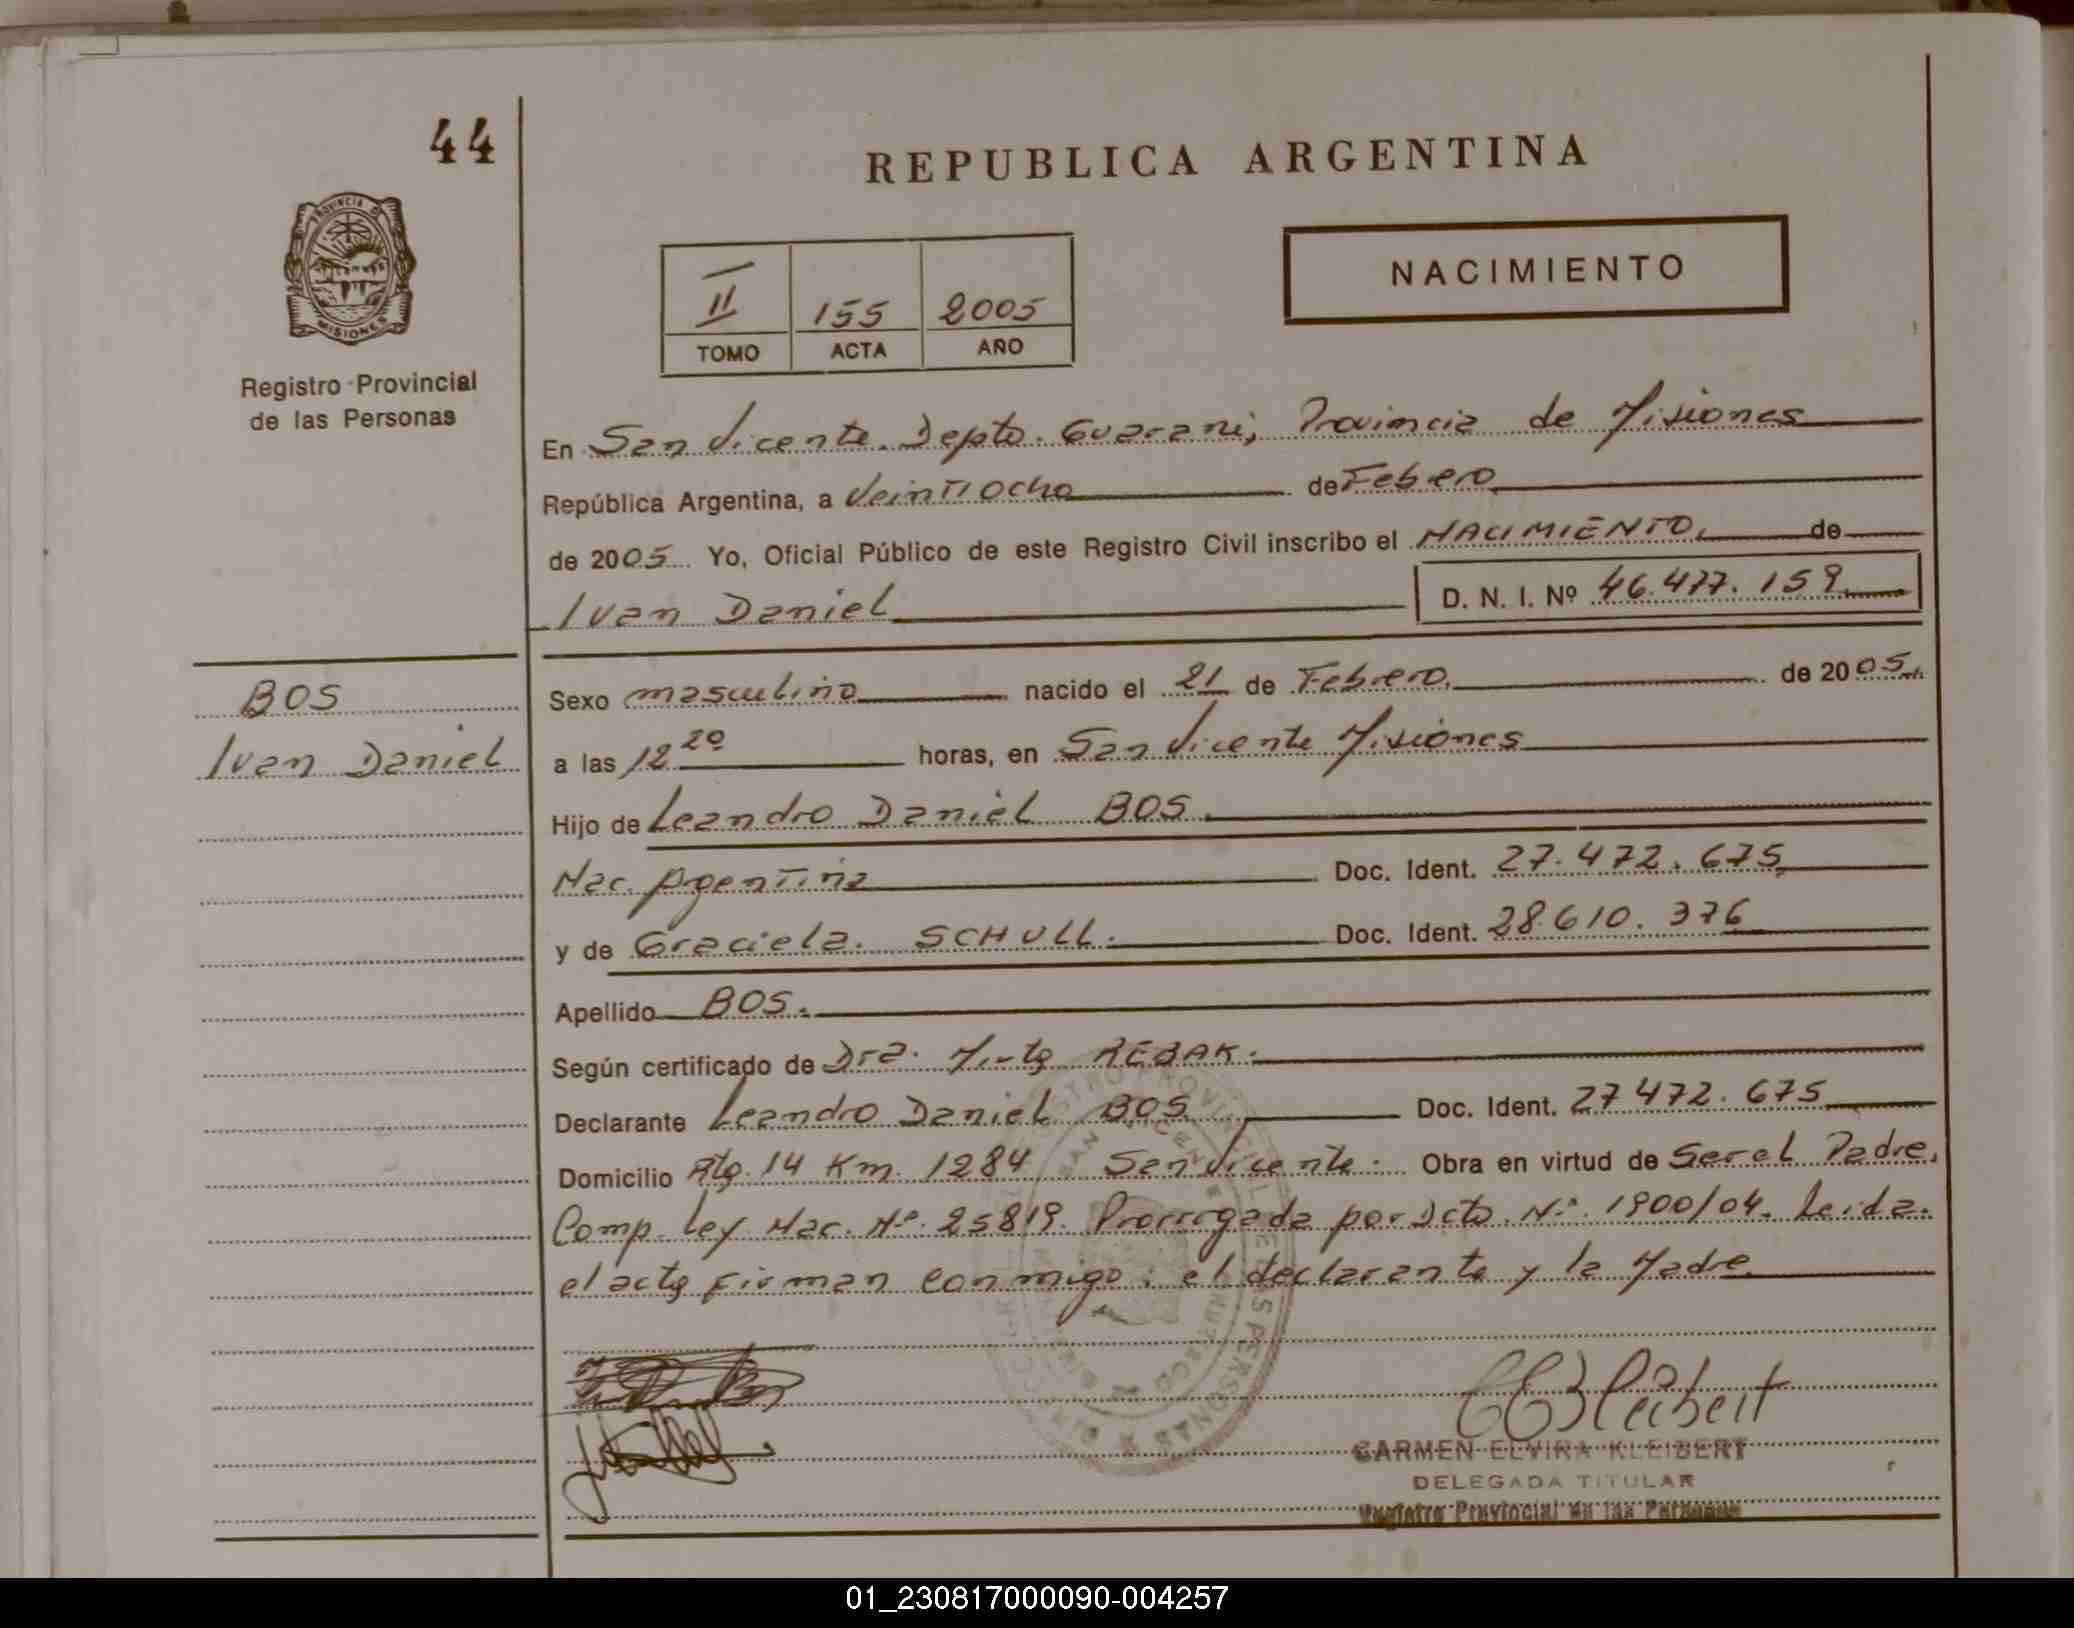 44
REPUBLICA ARGENTINA
PROVINCIA DE
MISIONES
Registro Provincial
de las Personas
II 155 2005
TOMO ACTA AÑO
NACIMIENTO
En San Vicente Depto. Guarani, Provincia de Misiones
República Argentina, a Veintiocho de Febrero
de 2005 Yo, Oficial Público de este Registro Civil inscribo el NACIMIENTO, de
Ivan Daniel D. N. I. Nº 46.477.159
BOS
Ivan Daniel
Sexo masculino nacido el 21 de Febrero. de 2005
a las 12 20 horas, en San Vicente Misiones
Hijo de Leandro Daniel BOS
Nac. Agentina Doc. Ident. 27.472.675
y de Graciela. SCHULL. Doc. Ident. 28.610.376
Apellido BOS.
Según certificado de Dra. Mirta REBAK.
Declarante Leandro Daniel BOS Doc. Ident. 27 472.675
Domicilio Rta. 14 Km. 1284 San Vicente. Obra en virtud de Ser el Padre.
Comp. Ley Nac. Nº 25819. Prorrogada por Dcto. Nº. 1900/04. Leida.
el acta firman conmigo: el declarante y la Madre
CARMEN ELVIRA KLEIBERT
DELEGADA TITULAR
Registro Provincial de las Personas
01_230817000090-004257